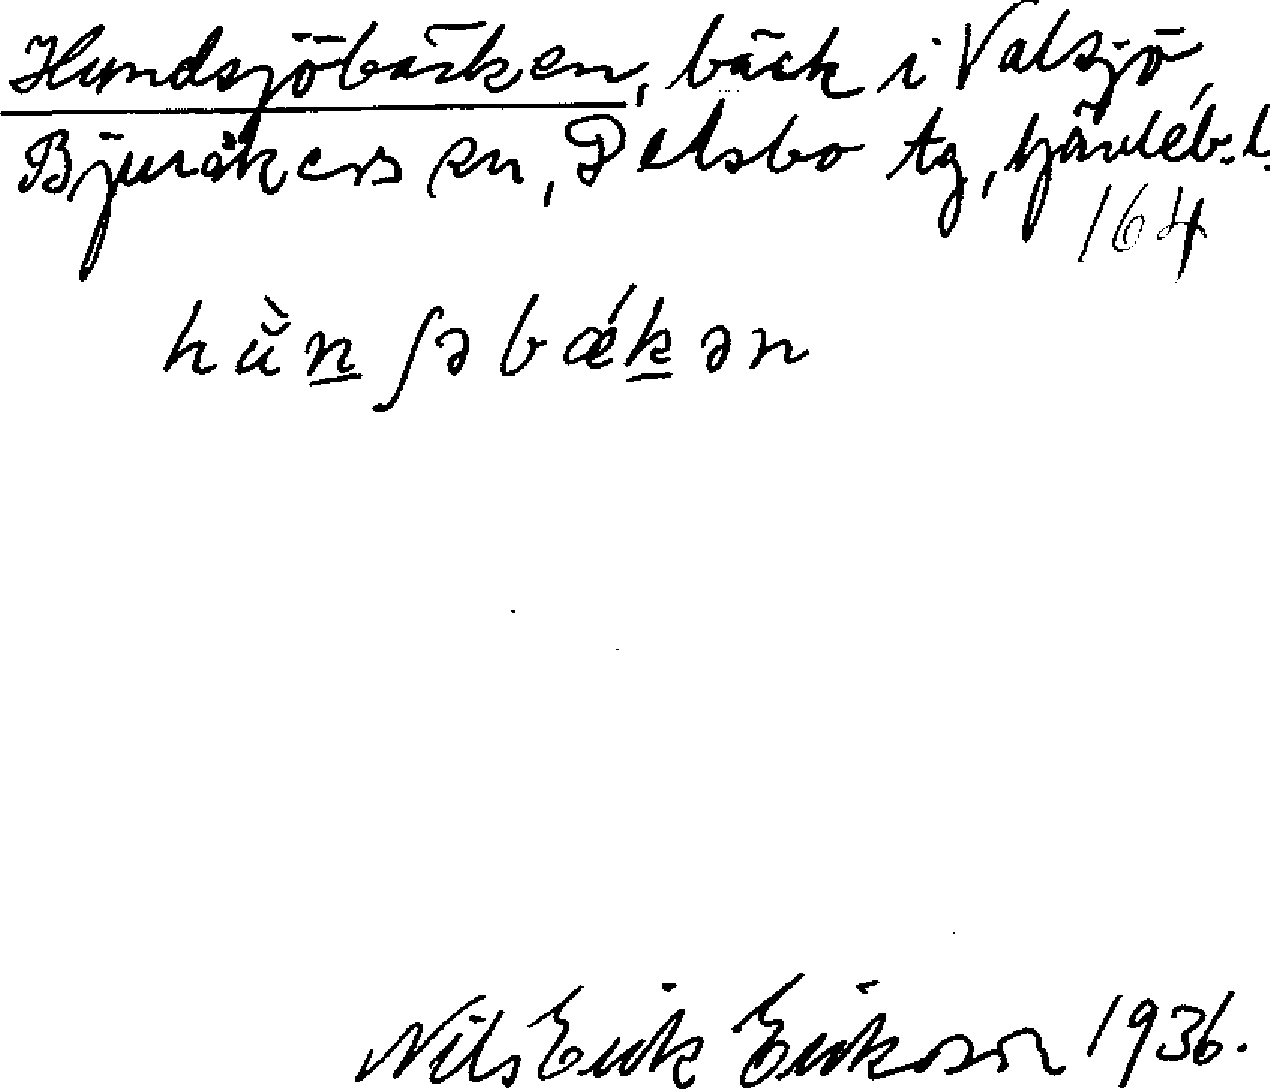 Hundsjöbäcken, bäck i Valsjö,
Bjuråkers sn, Delsbo tg, Gävleb. l.
164
hǜn̲ʃəbǽk̲ən
Nils Erik Erikson 1936.